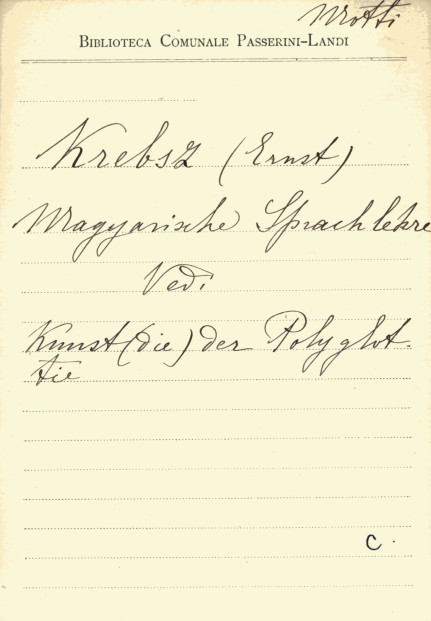 Motti
BIBLIOTECA COMUNALE PASSERINI-LANDI
Krebsz (Ernst)
Magyarische Sprachlehre
Vedi
Kunst (die) der Polyglot-
tie
C.